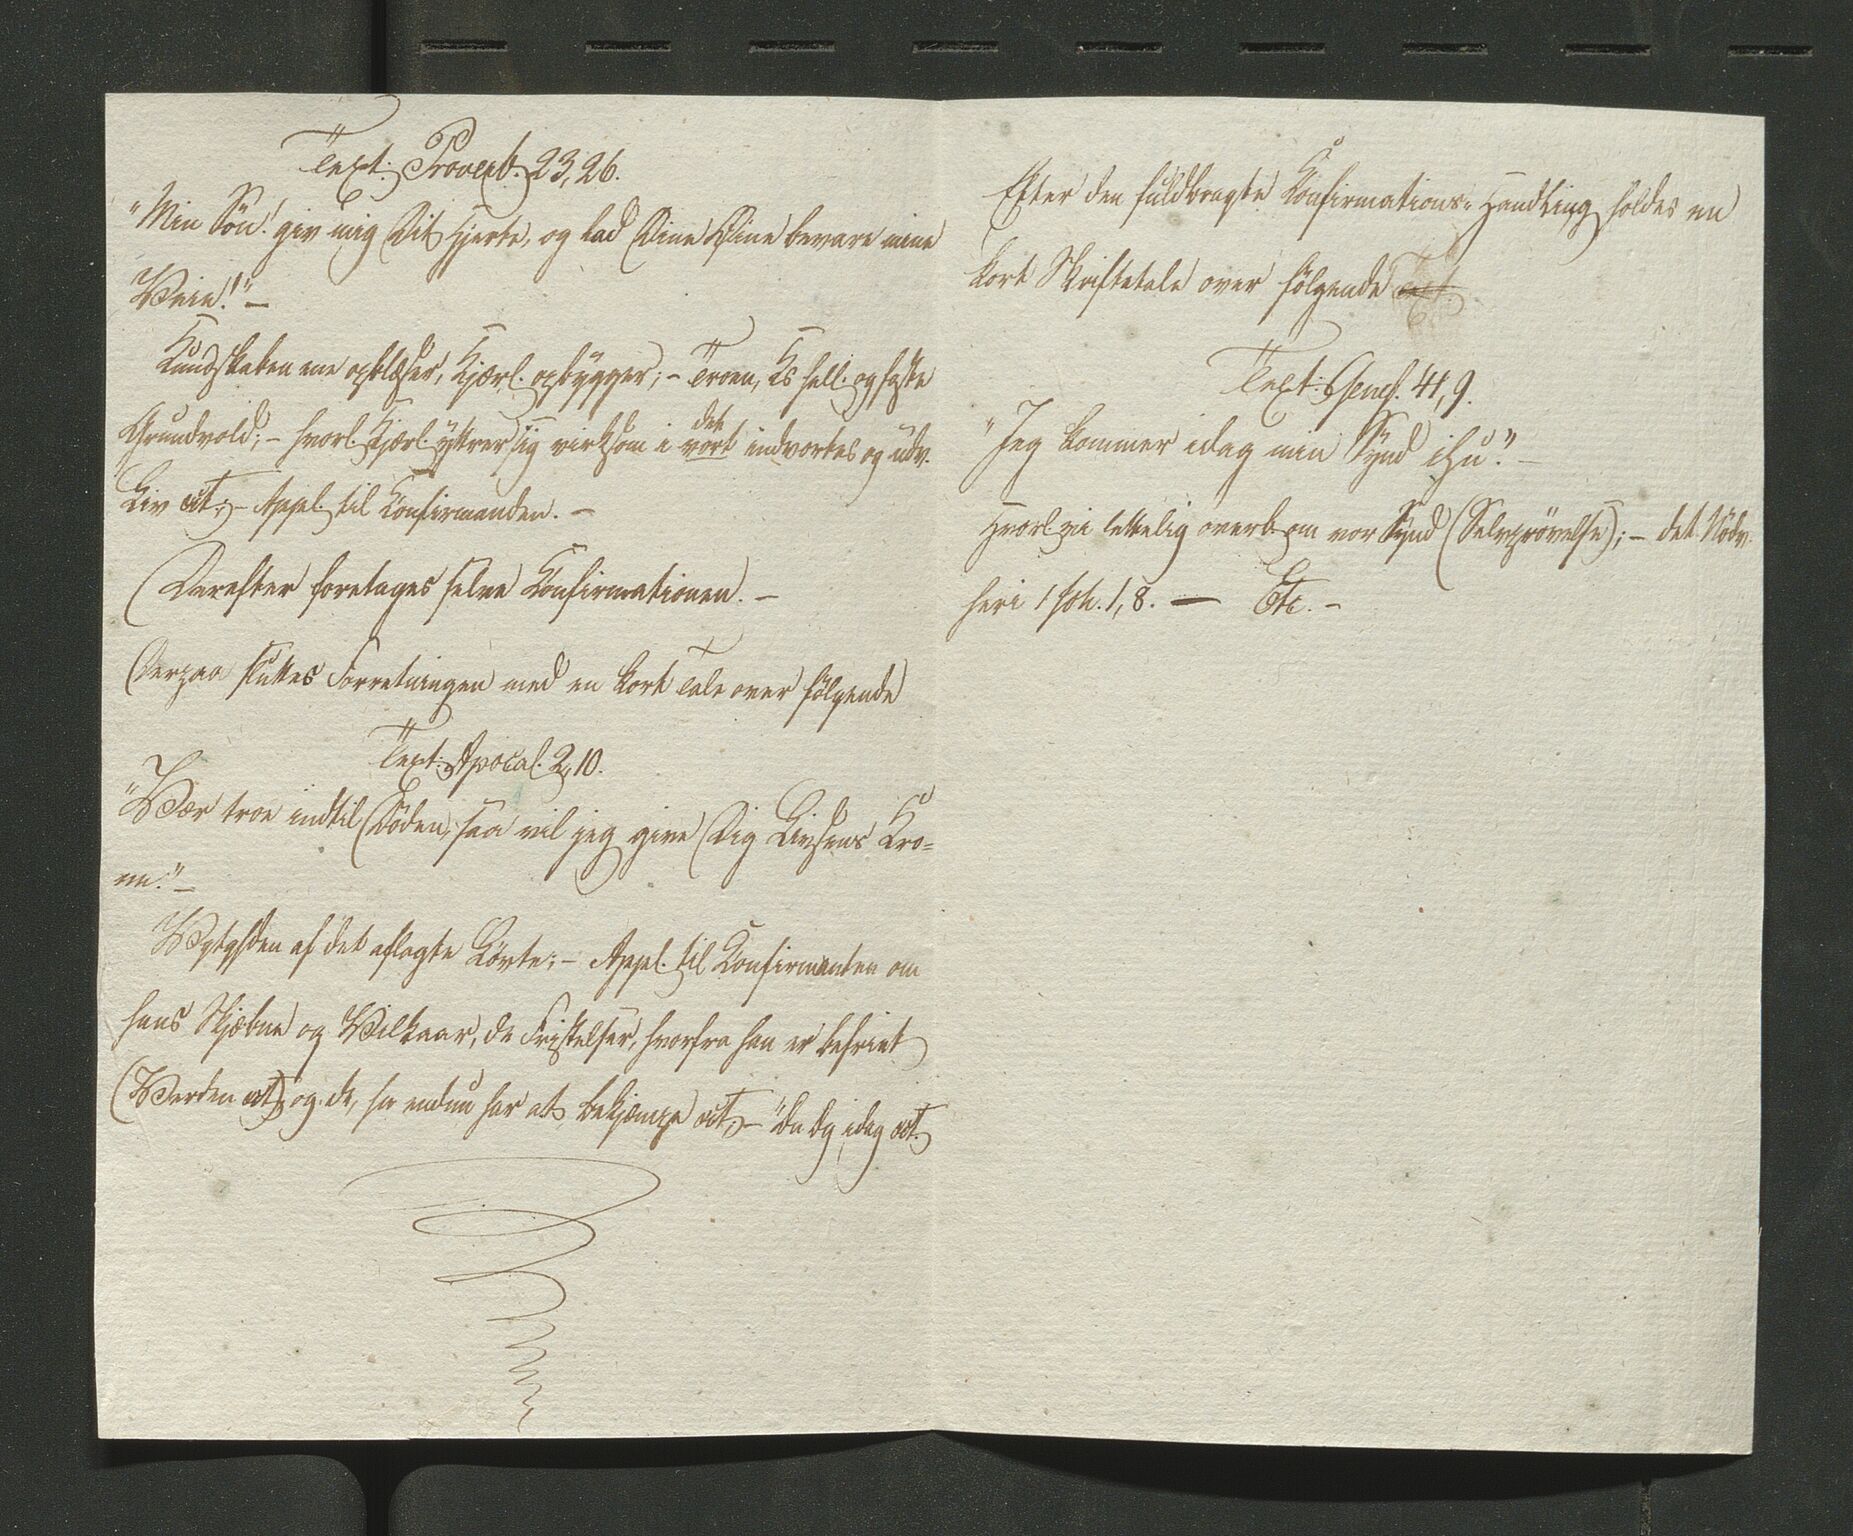 Text: Proverb. 23, 26.
"Min Sön! giv mig Dit Hjerte, og lad Dine Øine bevare mine
Veie!" –
Kundskaben ene opblæser, Kjærl. opbygger; – Troen, Ks hell. og faste
Grundvold; – hvorl. Kjærl. yttrer sig virksom i vort det indvortes og udv.
Liv ect; – Appl. til Confirmanden. –
(Derefter foretages selve Confirmationen. –
Derpaa sluttes Forretningen med en kort Tale over fölgende
Text: Apocal. 2, 10.
"Vær troe indtil Döden, saa vil jeg give Dig Livsens Kro=
ne." –
Vigtigheden af det aflagte Lövte; – Appl. til Confirmanten om
hans Skjæbne og Vilkaar, de Fristelser, hvorfra han er befriet
(Verden ect) og de, han endnu har at bekjæmpe ect; – "Da Dg idag ect.
Efter den fuldbragte Confirmations=Handling holdes en
kort Skriftetale over fölgende Text.
Text: Genes. 41, 9.
"Jeg kommer idag min Synd ihu". –
Hvorl. vi lettelig overb. om vor Synd (Selvprövelse); – det Nödv.
heri 1 Joh. 1, 8. — Etc. –